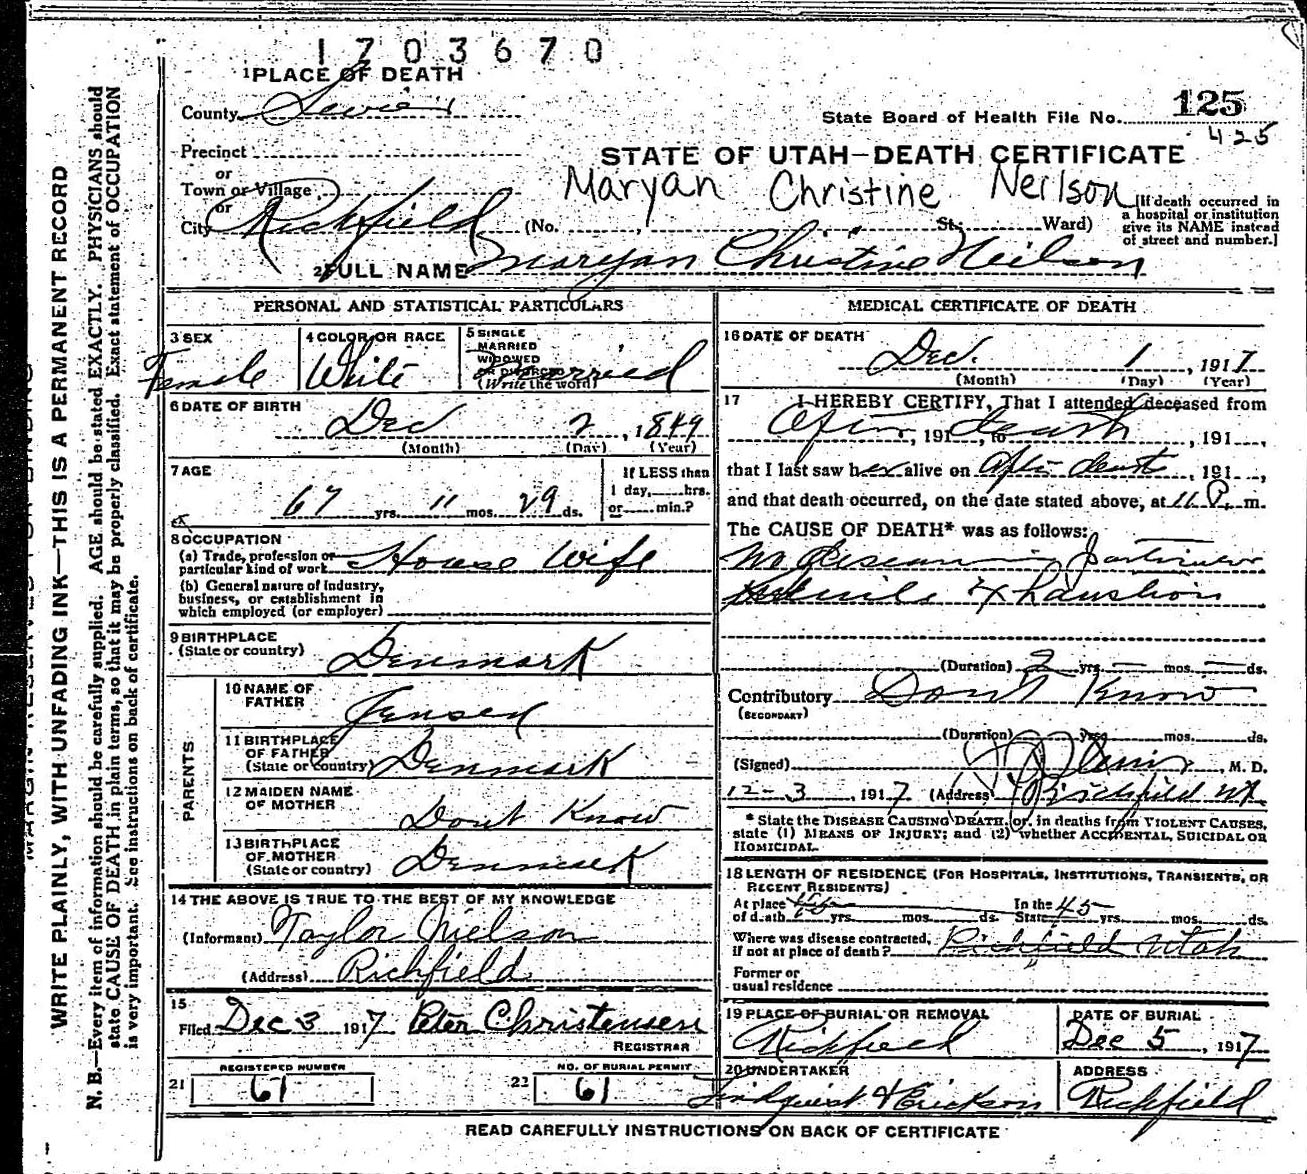 1703670
1 PLACE OF DEATH
County Sevier
State Board of Health File No. 125
425
Precinct
or
Town or Village
or
City Richfield (No. , St.; Ward)
STATE OF UTAH—DEATH CERTIFICATE
Maryan Christine Neilson
[If death occurred in
a hospital or institution
give its NAME instead
of street and number.]
2 FULL NAME Maryan Christine Neilson
PERSONAL AND STATISTICAL PARTICULARS
3 SEX
Female
4 COLOR OR RACE
White
5 SINGLE
MARRIED
WIDOWED
OR DIVORCED
(Write the word)
Married
6 DATE OF BIRTH
Dec 2, 1849
(Month) (Day) (Year)
7 AGE
67 yrs. 11 mos. 29 ds.
If LESS than
1 day, hrs.
or min.?
8 OCCUPATION
(a) Trade, profession or
particular kind of work House Wife
(b) General nature of industry,
business, or establishment in
which employed (or employer)
9 BIRTHPLACE
(State or country) Denmark
PARENTS
10 NAME OF
FATHER Jensen
11 BIRTHPLACE
OF FATHER
(State or country) Denmark
12 MAIDEN NAME
OF MOTHER Dont Know
13 BIRTHPLACE
OF MOTHER
(State or country) Denmark
14 THE ABOVE IS TRUE TO THE BEST OF MY KNOWLEDGE
(Informant) Taylor Nielson
(Address) Richfield
15
Filed Dec 3 1917 Peter Christensen
REGISTRAR
21 REGISTERED NUMBER
61
22 NO. OF BURIAL PERMIT
61
MEDICAL CERTIFICATE OF DEATH
16 DATE OF DEATH
Dec. 1, 1917
(Month) (Day) (Year)
17 I HEREBY CERTIFY, That I attended deceased from
After, 191 , to death, 191 ,
that I last saw her alive on After death, 191
and that death occurred, on the date stated above, at 11 P. m.
The CAUSE OF DEATH* was as follows:
Exhaustion
(Duration) 2 yrs. — mos. — ds.
Contributory Dont Know
(SECONDARY)
(Duration) yrs. mos. ds.
(Signed) , M. D.
12-3, 1917 (Address) Richfield Ut.
* State the DISEASE CAUSING DEATH, or, in deaths from VIOLENT CAUSES,
state (1) MEANS OF INJURY; and (2) whether ACCIDENTAL, SUICIDAL OR
HOMICIDAL.
18 LENGTH OF RESIDENCE (FOR HOSPITALS, INSTITUTIONS, TRANSIENTS, OR
RECENT RESIDENTS)
At place
of death 45 yrs. mos. ds. In the
State 45 yrs. mos. ds.
Where was disease contracted,
if not at place of death? Richfield Utah
Former or
usual residence
19 PLACE OF BURIAL OR REMOVAL
Richfield
DATE OF BURIAL
Dec 5, 1917
20 UNDERTAKER
Lindquist & Erickson
ADDRESS
Richfield
READ CAREFULLY INSTRUCTIONS ON BACK OF CERTIFICATE
WRITE PLAINLY, WITH UNFADING INK—THIS IS A PERMANENT RECORD
N. B.—Every item of information should be carefully supplied. AGE should be stated EXACTLY. PHYSICIANS should
state CAUSE OF DEATH in plain terms, so that it may be properly classified. Exact statement of OCCUPATION
is very important. See instructions on back of certificate.